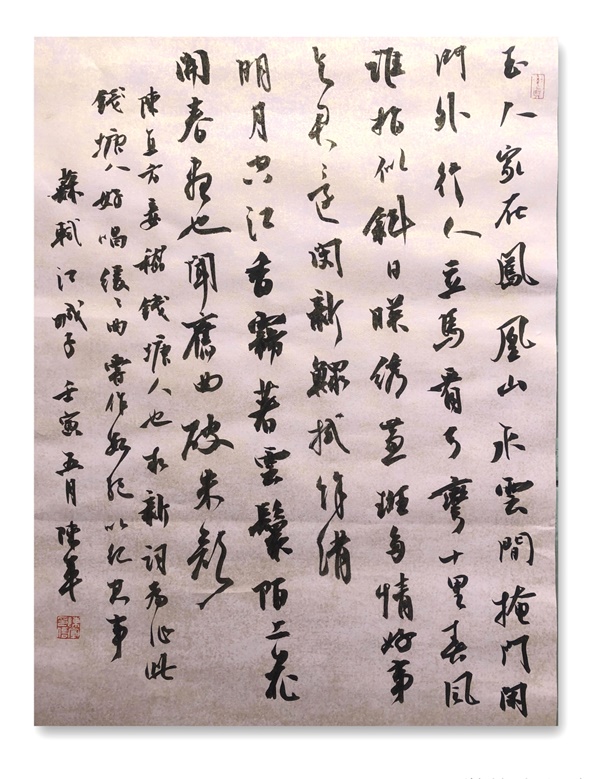 玉人家在鳳凰山水雲間掩門閑
門外行人立馬看弓彎十里春風
誰指似斜日映繡簾斑多情好事
與君還閔新鰥拭餘潸
明月空江香霧著雲鬟陌上花
開春盡也聞舊曲破朱顏
陳直方妾嵇錢塘人也求新詞為作此
錢塘人好唱緩緩曲嘗作數絕以紀其事
蘇軾江城子壬寅五月陳